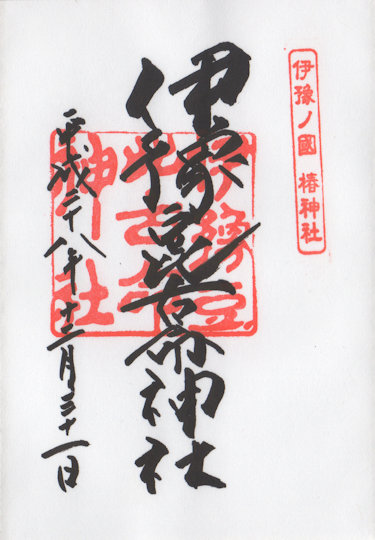 伊豫ノ國 椿神社
伊豫豆比古命神社
伊豫豆
比古命
神社
平成二十八年十二月三十一日